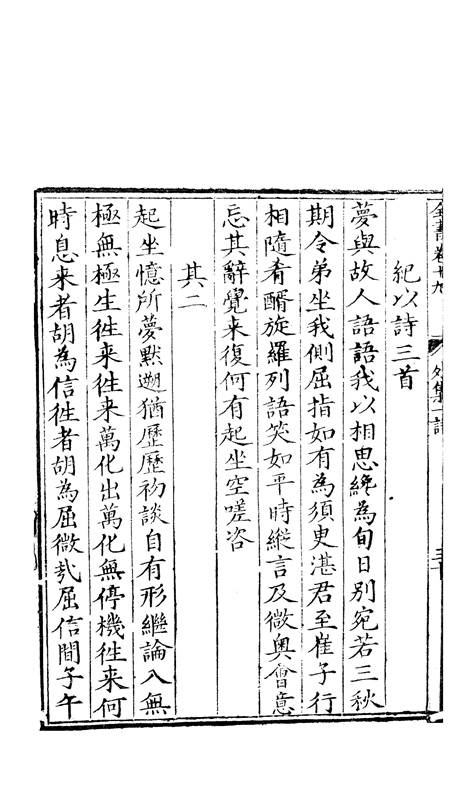 紀以詩三首
夢與故人語語我以相思纔為旬日別宛若三秋
期令弟坐我側屈指如有為須臾湛君至崔子行
相隨肴醑旋羅列語笑如平時縱言及微奧會意
忘其辭覺來復何有起坐空嗟咨
其二
起坐憶所夢默遡猶歷歷初談自有形繼論入無
極無極生徃来徃来萬化出萬化無停機徃来何
時息来者胡為信徃者胡為屈微哉屈信間子午